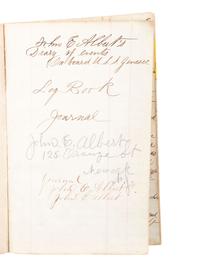 John E Albert's
Diary of events
On board U.S.S Genesee
Log Book
Journal
John E. Albert
128 Orange St
Newark
N.J.
Journal
John E Albert
John E Albert